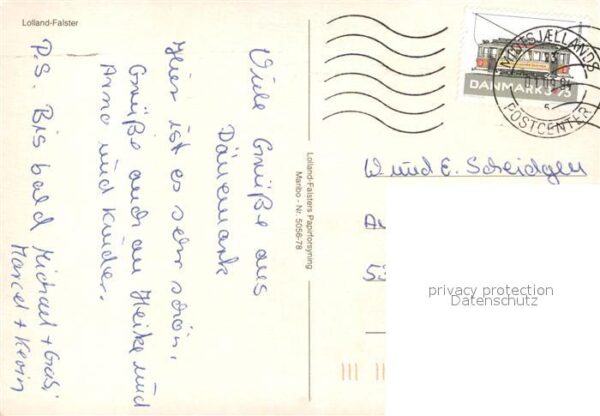 Lolland-Falster
Viele Grüße aus
Dänemark
Hier ist es sehr schön.
Grüße auch an Heike und
Arno und Kinder.
P.S. Bis bald Michael + Gabi
Marcel + Kevin
Lolland-Falsters Papirforsyning
Maribo - Nr. 5056-78
MIDTSJÆLLANDS
POSTCENTER
DANMARK 3.75
W und E. Scheidgen
privacy protection
Datenschutz